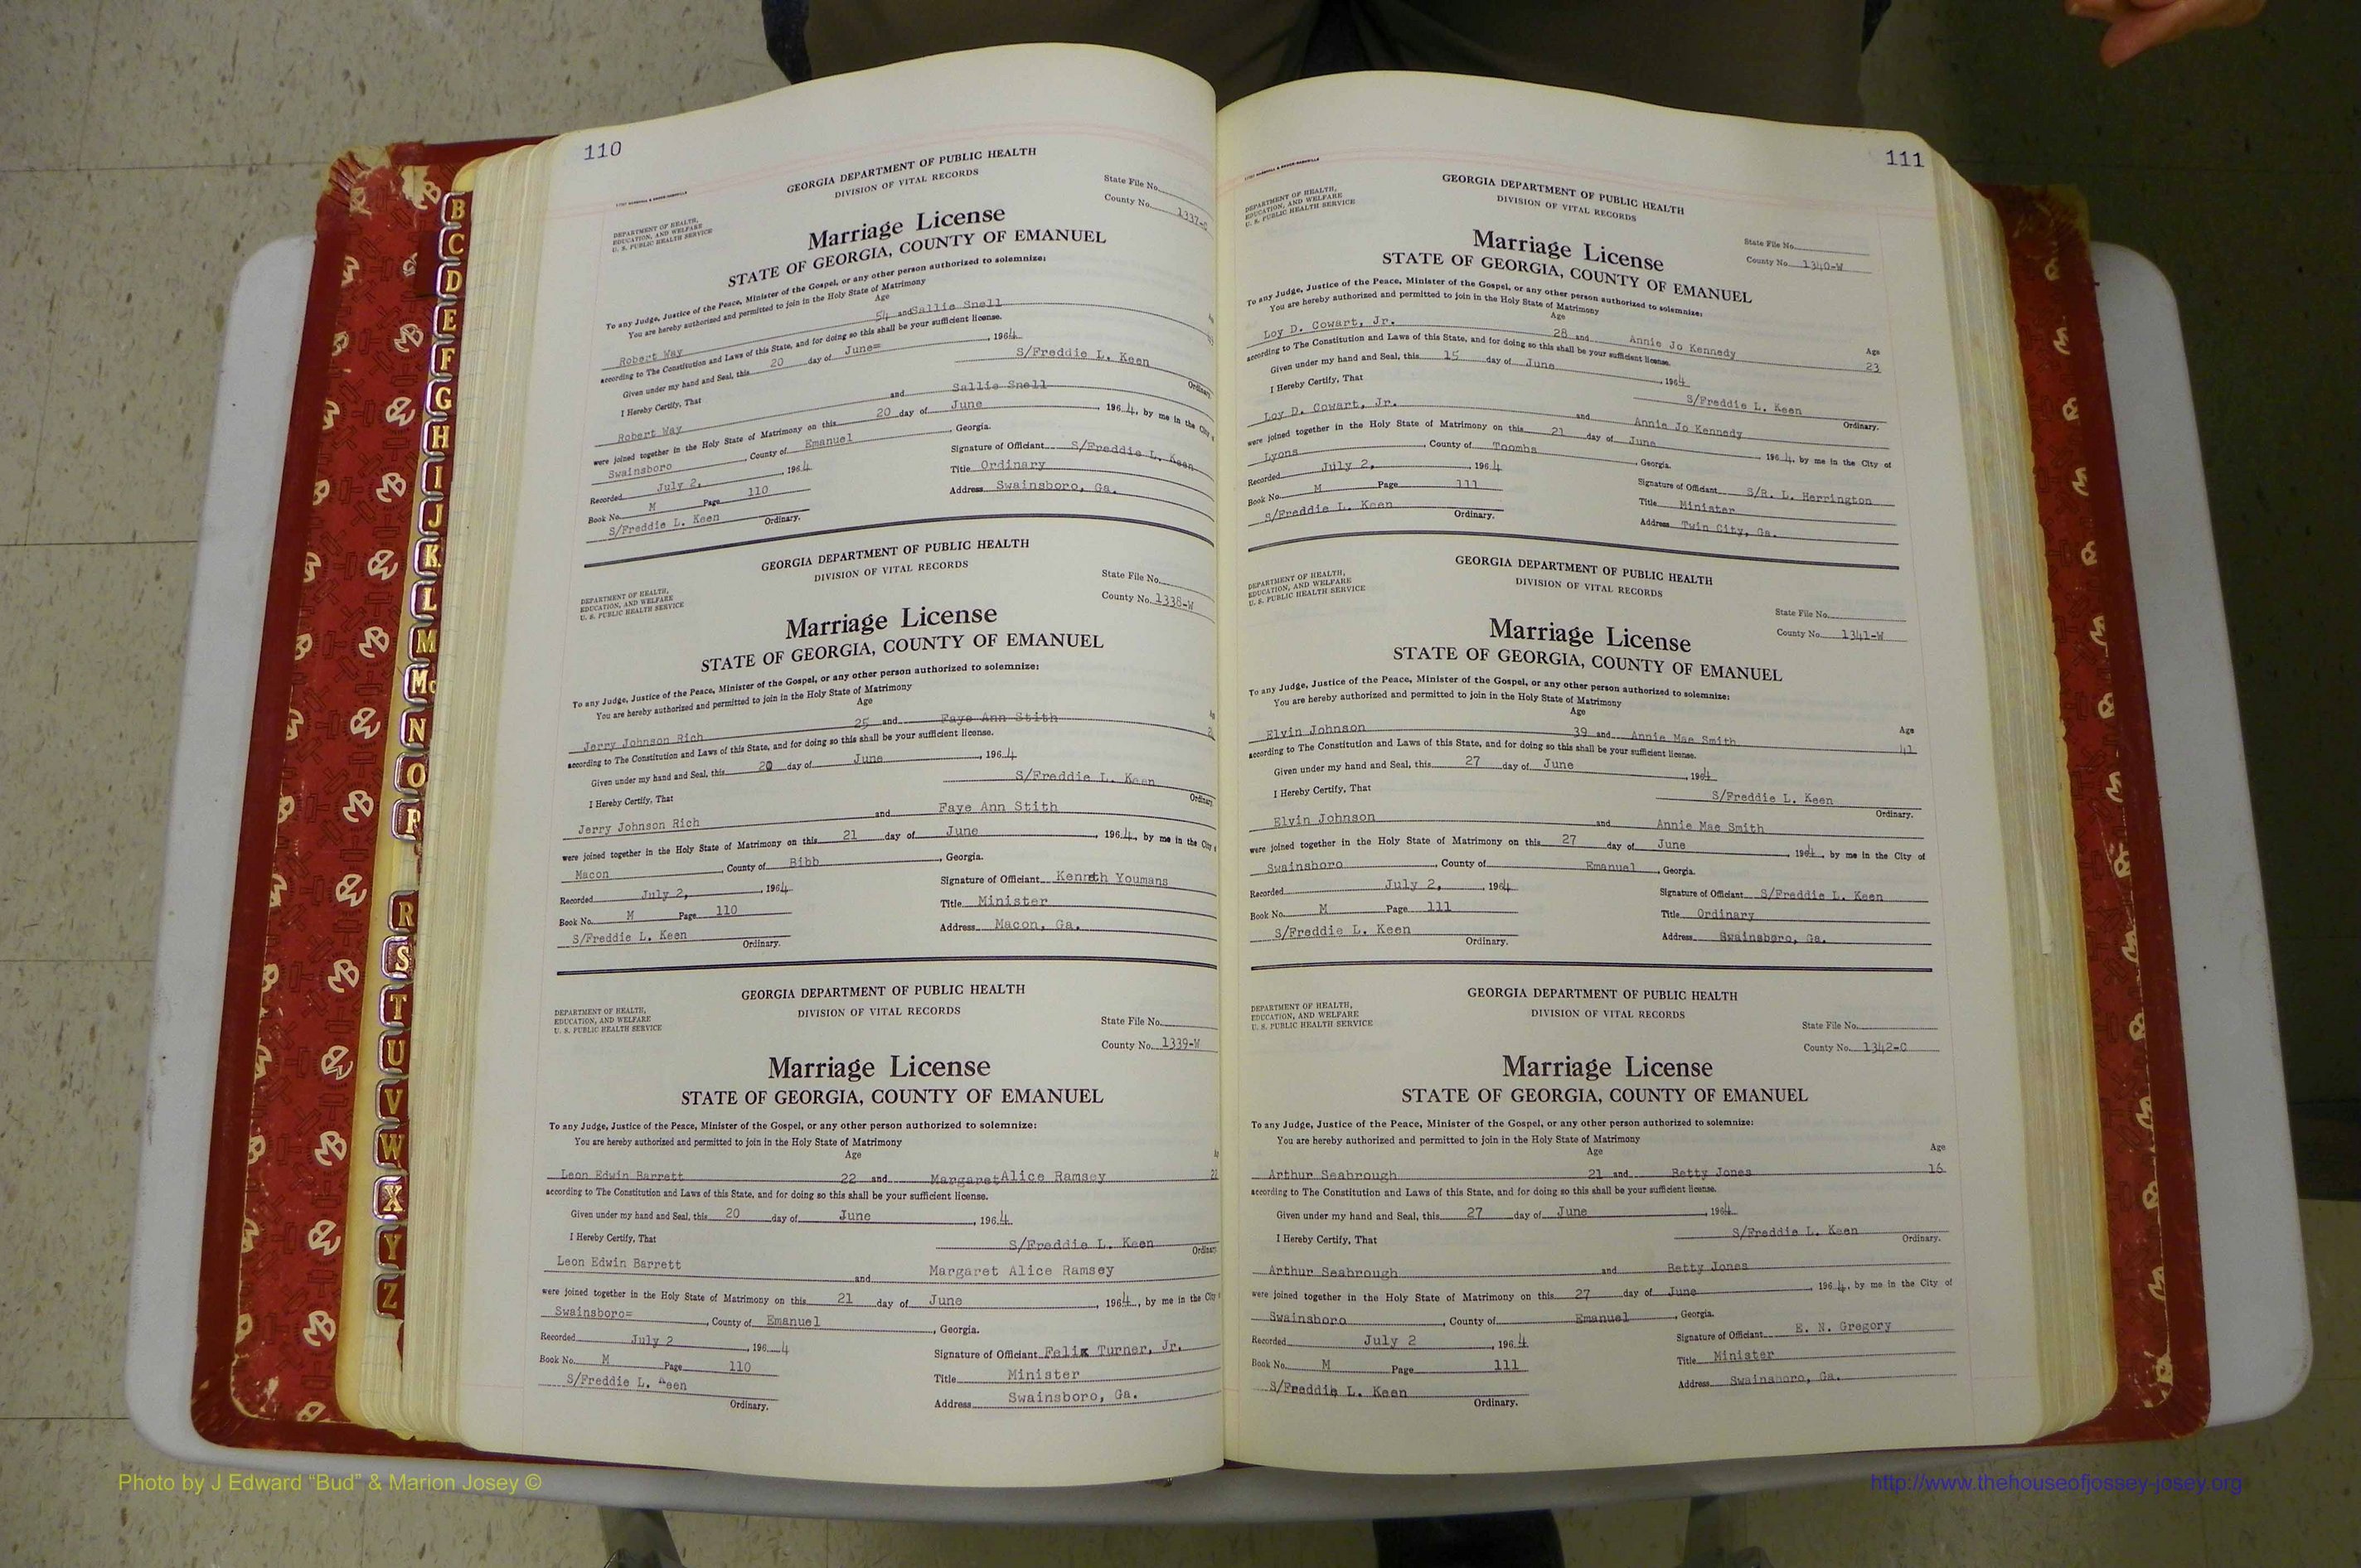 110
GEORGIA DEPARTMENT OF PUBLIC HEALTH
DIVISION OF VITAL RECORDS
DEPARTMENT OF HEALTH,
EDUCATION, AND WELFARE
U. S. PUBLIC HEALTH SERVICE
State File No.
County No. 1337-C
Marriage License
STATE OF GEORGIA, COUNTY OF EMANUEL
To any Judge, Justice of the Peace, Minister of the Gospel, or any other person authorized to solemnize:
You are hereby authorized and permitted to join in the Holy State of Matrimony
Age
Robert Way 54 and Sallie Snell
according to The Constitution and Laws of this State, and for doing so this shall be your sufficient license.
Given under my hand and Seal, this 20 day of June= , 1964
S/Freddie L. Keen
I Hereby Certify, That Ordinary.
Robert Way and Sallie Snell
were joined together in the Holy State of Matrimony on this 20 day of June , 1964, by me in the City
Swainsboro , County of Emanuel , Georgia.
Recorded July 2, , 1964 Signature of Officiant S/Freddie L. Keen
Book No. M Page 110 Title Ordinary
S/Freddie L. Keen Address Swainsboro, Ga.
Ordinary.
GEORGIA DEPARTMENT OF PUBLIC HEALTH
DIVISION OF VITAL RECORDS
DEPARTMENT OF HEALTH,
EDUCATION, AND WELFARE
U. S. PUBLIC HEALTH SERVICE
State File No.
County No. 1338-W
Marriage License
STATE OF GEORGIA, COUNTY OF EMANUEL
To any Judge, Justice of the Peace, Minister of the Gospel, or any other person authorized to solemnize:
You are hereby authorized and permitted to join in the Holy State of Matrimony
Age
Jerry Johnson Rich 25 and Faye Ann Stith
according to The Constitution and Laws of this State, and for doing so this shall be your sufficient license.
Given under my hand and Seal, this 20 day of June , 1964
S/Freddie L. Keen
I Hereby Certify, That Ordinary
Jerry Johnson Rich and Faye Ann Stith
were joined together in the Holy State of Matrimony on this 21 day of June , 1964, by me in the City
Macon , County of Bibb , Georgia.
Recorded July 2, , 1964 Signature of Officiant Kenneth Youmans
Book No. M Page 110 Title Minister
S/Freddie L. Keen Address Macon, Ga.
Ordinary.
GEORGIA DEPARTMENT OF PUBLIC HEALTH
DIVISION OF VITAL RECORDS
DEPARTMENT OF HEALTH,
EDUCATION, AND WELFARE
U. S. PUBLIC HEALTH SERVICE
State File No.
County No. 1339-W
Marriage License
STATE OF GEORGIA, COUNTY OF EMANUEL
To any Judge, Justice of the Peace, Minister of the Gospel, or any other person authorized to solemnize:
You are hereby authorized and permitted to join in the Holy State of Matrimony
Age
Leon Edwin Barrett 22 and Margaret Alice Ramsey
according to The Constitution and Laws of this State, and for doing so this shall be your sufficient license.
Given under my hand and Seal, this 20 day of June , 1964
S/Freddie L. Keen
I Hereby Certify, That Ordinary
Leon Edwin Barrett and Margaret Alice Ramsey
were joined together in the Holy State of Matrimony on this 21 day of June , 1964, by me in the City
Swainsboro= , County of Emanuel , Georgia.
Recorded July 2 , 1964 Signature of Officiant Felix Turner, Jr.
Book No. M Page 110 Title Minister
S/Freddie L. Keen Address Swainsboro, Ga.
Ordinary.
111
GEORGIA DEPARTMENT OF PUBLIC HEALTH
DIVISION OF VITAL RECORDS
DEPARTMENT OF HEALTH,
EDUCATION, AND WELFARE
U. S. PUBLIC HEALTH SERVICE
State File No.
County No. 1340-W
Marriage License
STATE OF GEORGIA, COUNTY OF EMANUEL
To any Judge, Justice of the Peace, Minister of the Gospel, or any other person authorized to solemnize:
You are hereby authorized and permitted to join in the Holy State of Matrimony
Age Age
Loy D. Cowart, Jr. 28 and Annie Jo Kennedy 23
according to The Constitution and Laws of this State, and for doing so this shall be your sufficient license.
Given under my hand and Seal, this 15 day of June , 1964
S/Freddie L. Keen
I Hereby Certify, That Ordinary.
Loy D. Cowart, Jr. and Annie Jo Kennedy
were joined together in the Holy State of Matrimony on this 21 day of June , 1964, by me in the City of
Lyons , County of Toombs , Georgia.
Recorded July 2, , 1964 Signature of Officiant S/R. L. Herrington
Book No. M Page 111 Title Minister
S/Freddie L. Keen Address Twin City, Ga.
Ordinary.
GEORGIA DEPARTMENT OF PUBLIC HEALTH
DIVISION OF VITAL RECORDS
DEPARTMENT OF HEALTH,
EDUCATION, AND WELFARE
U. S. PUBLIC HEALTH SERVICE
State File No.
County No. 1341-W
Marriage License
STATE OF GEORGIA, COUNTY OF EMANUEL
To any Judge, Justice of the Peace, Minister of the Gospel, or any other person authorized to solemnize:
You are hereby authorized and permitted to join in the Holy State of Matrimony
Age Age
Elvin Johnson 39 and Annie Mae Smith 41
according to The Constitution and Laws of this State, and for doing so this shall be your sufficient license.
Given under my hand and Seal, this 27 day of June , 1964
S/Freddie L. Keen
I Hereby Certify, That Ordinary.
Elvin Johnson and Annie Mae Smith
were joined together in the Holy State of Matrimony on this 27 day of June , 1964, by me in the City of
Swainsboro , County of Emanuel , Georgia.
Recorded July 2, , 1964 Signature of Officiant S/Freddie L. Keen
Book No. M Page 111 Title Ordinary
S/Freddie L. Keen Address Swainsboro, Ga.
Ordinary.
GEORGIA DEPARTMENT OF PUBLIC HEALTH
DIVISION OF VITAL RECORDS
DEPARTMENT OF HEALTH,
EDUCATION, AND WELFARE
U. S. PUBLIC HEALTH SERVICE
State File No.
County No. 1342-C
Marriage License
STATE OF GEORGIA, COUNTY OF EMANUEL
To any Judge, Justice of the Peace, Minister of the Gospel, or any other person authorized to solemnize:
You are hereby authorized and permitted to join in the Holy State of Matrimony
Age Age
Arthur Seabrough 21 and Betty Jones 16
according to The Constitution and Laws of this State, and for doing so this shall be your sufficient license.
Given under my hand and Seal, this 27 day of June , 1964
S/Freddie L. Keen
I Hereby Certify, That Ordinary.
Arthur Seabrough and Betty Jones
were joined together in the Holy State of Matrimony on this 27 day of June , 1964, by me in the City of
Swainsboro , County of Emanuel , Georgia.
Recorded July 2 , 1964 Signature of Officiant E. N. Gregory
Book No. M Page 111 Title Minister
S/Freddie L. Keen Address Swainsboro, Ga.
Ordinary.
B
C
D
E
F
G
H
I
J
K
L
M
Mc
N
O
P
R
S
T
U
V
W
X
Y
Z
Photo by J Edward “Bud” & Marion Josey ©
http://www.thehouseofjossey-josey.org